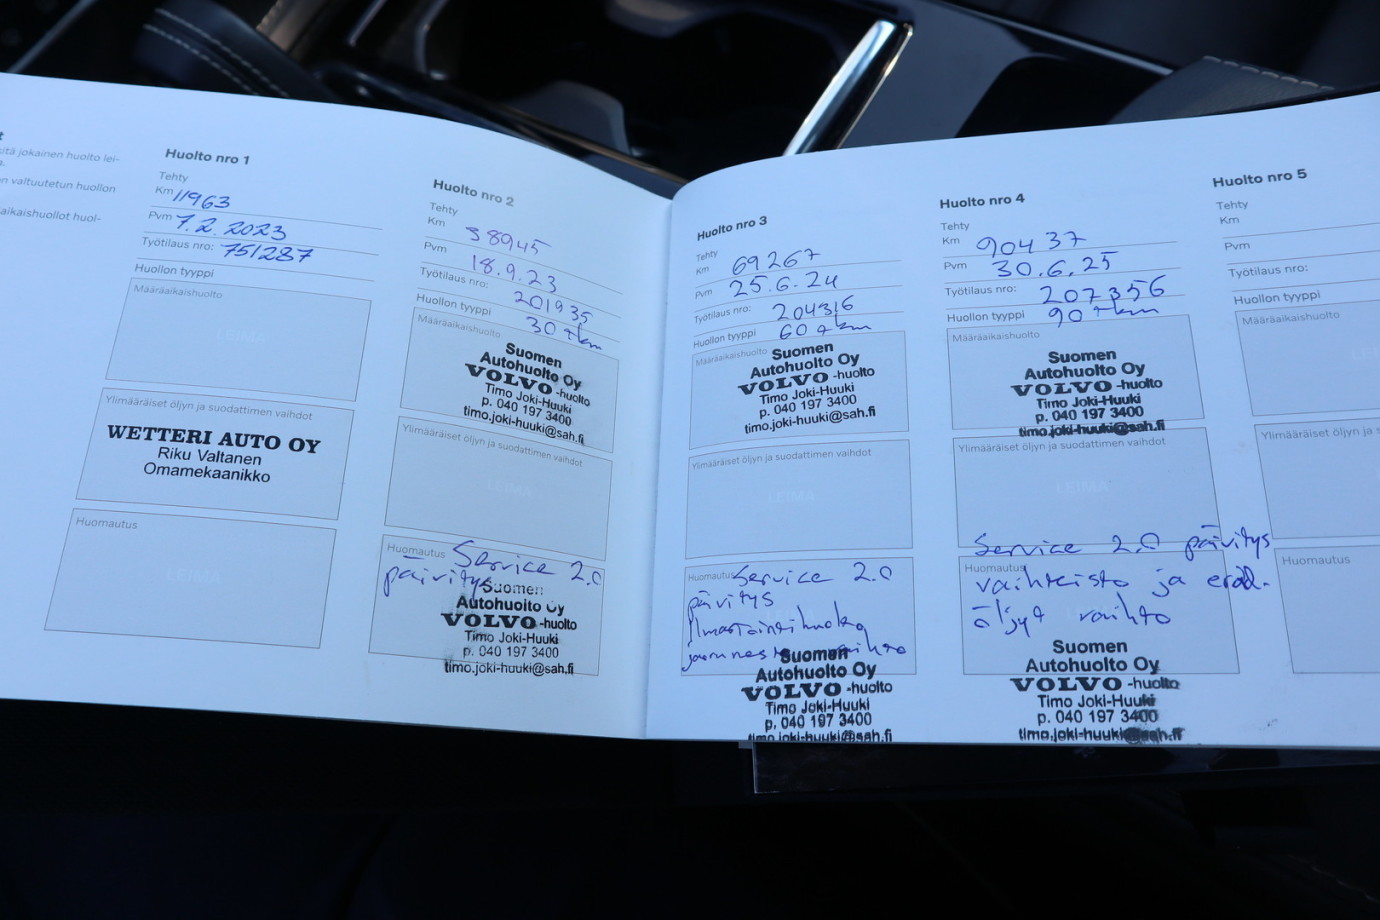 t
kitä jokainen huolto lei-
o.
n valtuutetun huollon
aikaishuollot huol-
Huolto nro 1
Tehty
Km 11963
Pvm 7.2.2023
Työtilaus nro: 751287
Huollon tyyppi
Määräaikaishuolto
LEIMA
Ylimääräiset öljyn ja suodattimen vaihdot
WETTERI AUTO OY
Riku Valtanen
Omamekaanikko
Huomautus
LEIMA
Huolto nro 2
Tehty
Km 38945
Pvm 18.9.23
Työtilaus nro: 201935
Huollon tyyppi 30 tkm
Määräaikaishuolto
Suomen
Autohuolto Oy
VOLVO -huolto
Timo Joki-Huuki
p. 040 197 3400
timo.joki-huuki@sah.fi
Ylimääräiset öljyn ja suodattimen vaihdot
LEIMA
Huomautus Service 2.0
päivitys
Suomen
Autohuolto Oy
VOLVO -huolto
Timo Joki-Huuki
p. 040 197 3400
timo.joki-huuki@sah.fi
Huolto nro 3
Tehty
Km 69267
Pvm 25.6.24
Työtilaus nro: 204316
Huollon tyyppi 60 tkm
Määräaikaishuolto
Suomen
Autohuolto Oy
VOLVO -huolto
Timo Joki-Huuki
p. 040 197 3400
timo.joki-huuki@sah.fi
Ylimääräiset öljyn ja suodattimen vaihdot
LEIMA
Huomautus Service 2.0
päivitys
Ilmastointihuolto
vaihto
Suomen
Autohuolto Oy
VOLVO -huolto
Timo Joki-Huuki
p. 040 197 3400
timo.joki-huuki@sah.fi
Huolto nro 4
Tehty
Km 90437
Pvm 30.6.25
Työtilaus nro: 207356
Huollon tyyppi 90 tkm
Määräaikaishuolto
Suomen
Autohuolto Oy
VOLVO -huolto
Timo Joki-Huuki
p. 040 197 3400
timo.joki-huuki@sah.fi
Ylimääräiset öljyn ja suodattimen vaihdot
LEIMA
Service 2.0 päivitys
Huomautus
vaihteisto ja
öljyt vaihto
Suomen
Autohuolto Oy
VOLVO -huolto
Timo Joki-Huuki
p. 040 197 3400
timo.joki-huuki@sah.fi
Huolto nro 5
Tehty
Km
Pvm
Työtilaus nro:
Huollon tyyppi
Määräaikaishuolto
LEI
Ylimääräiset öljyn ja s
Huomautus